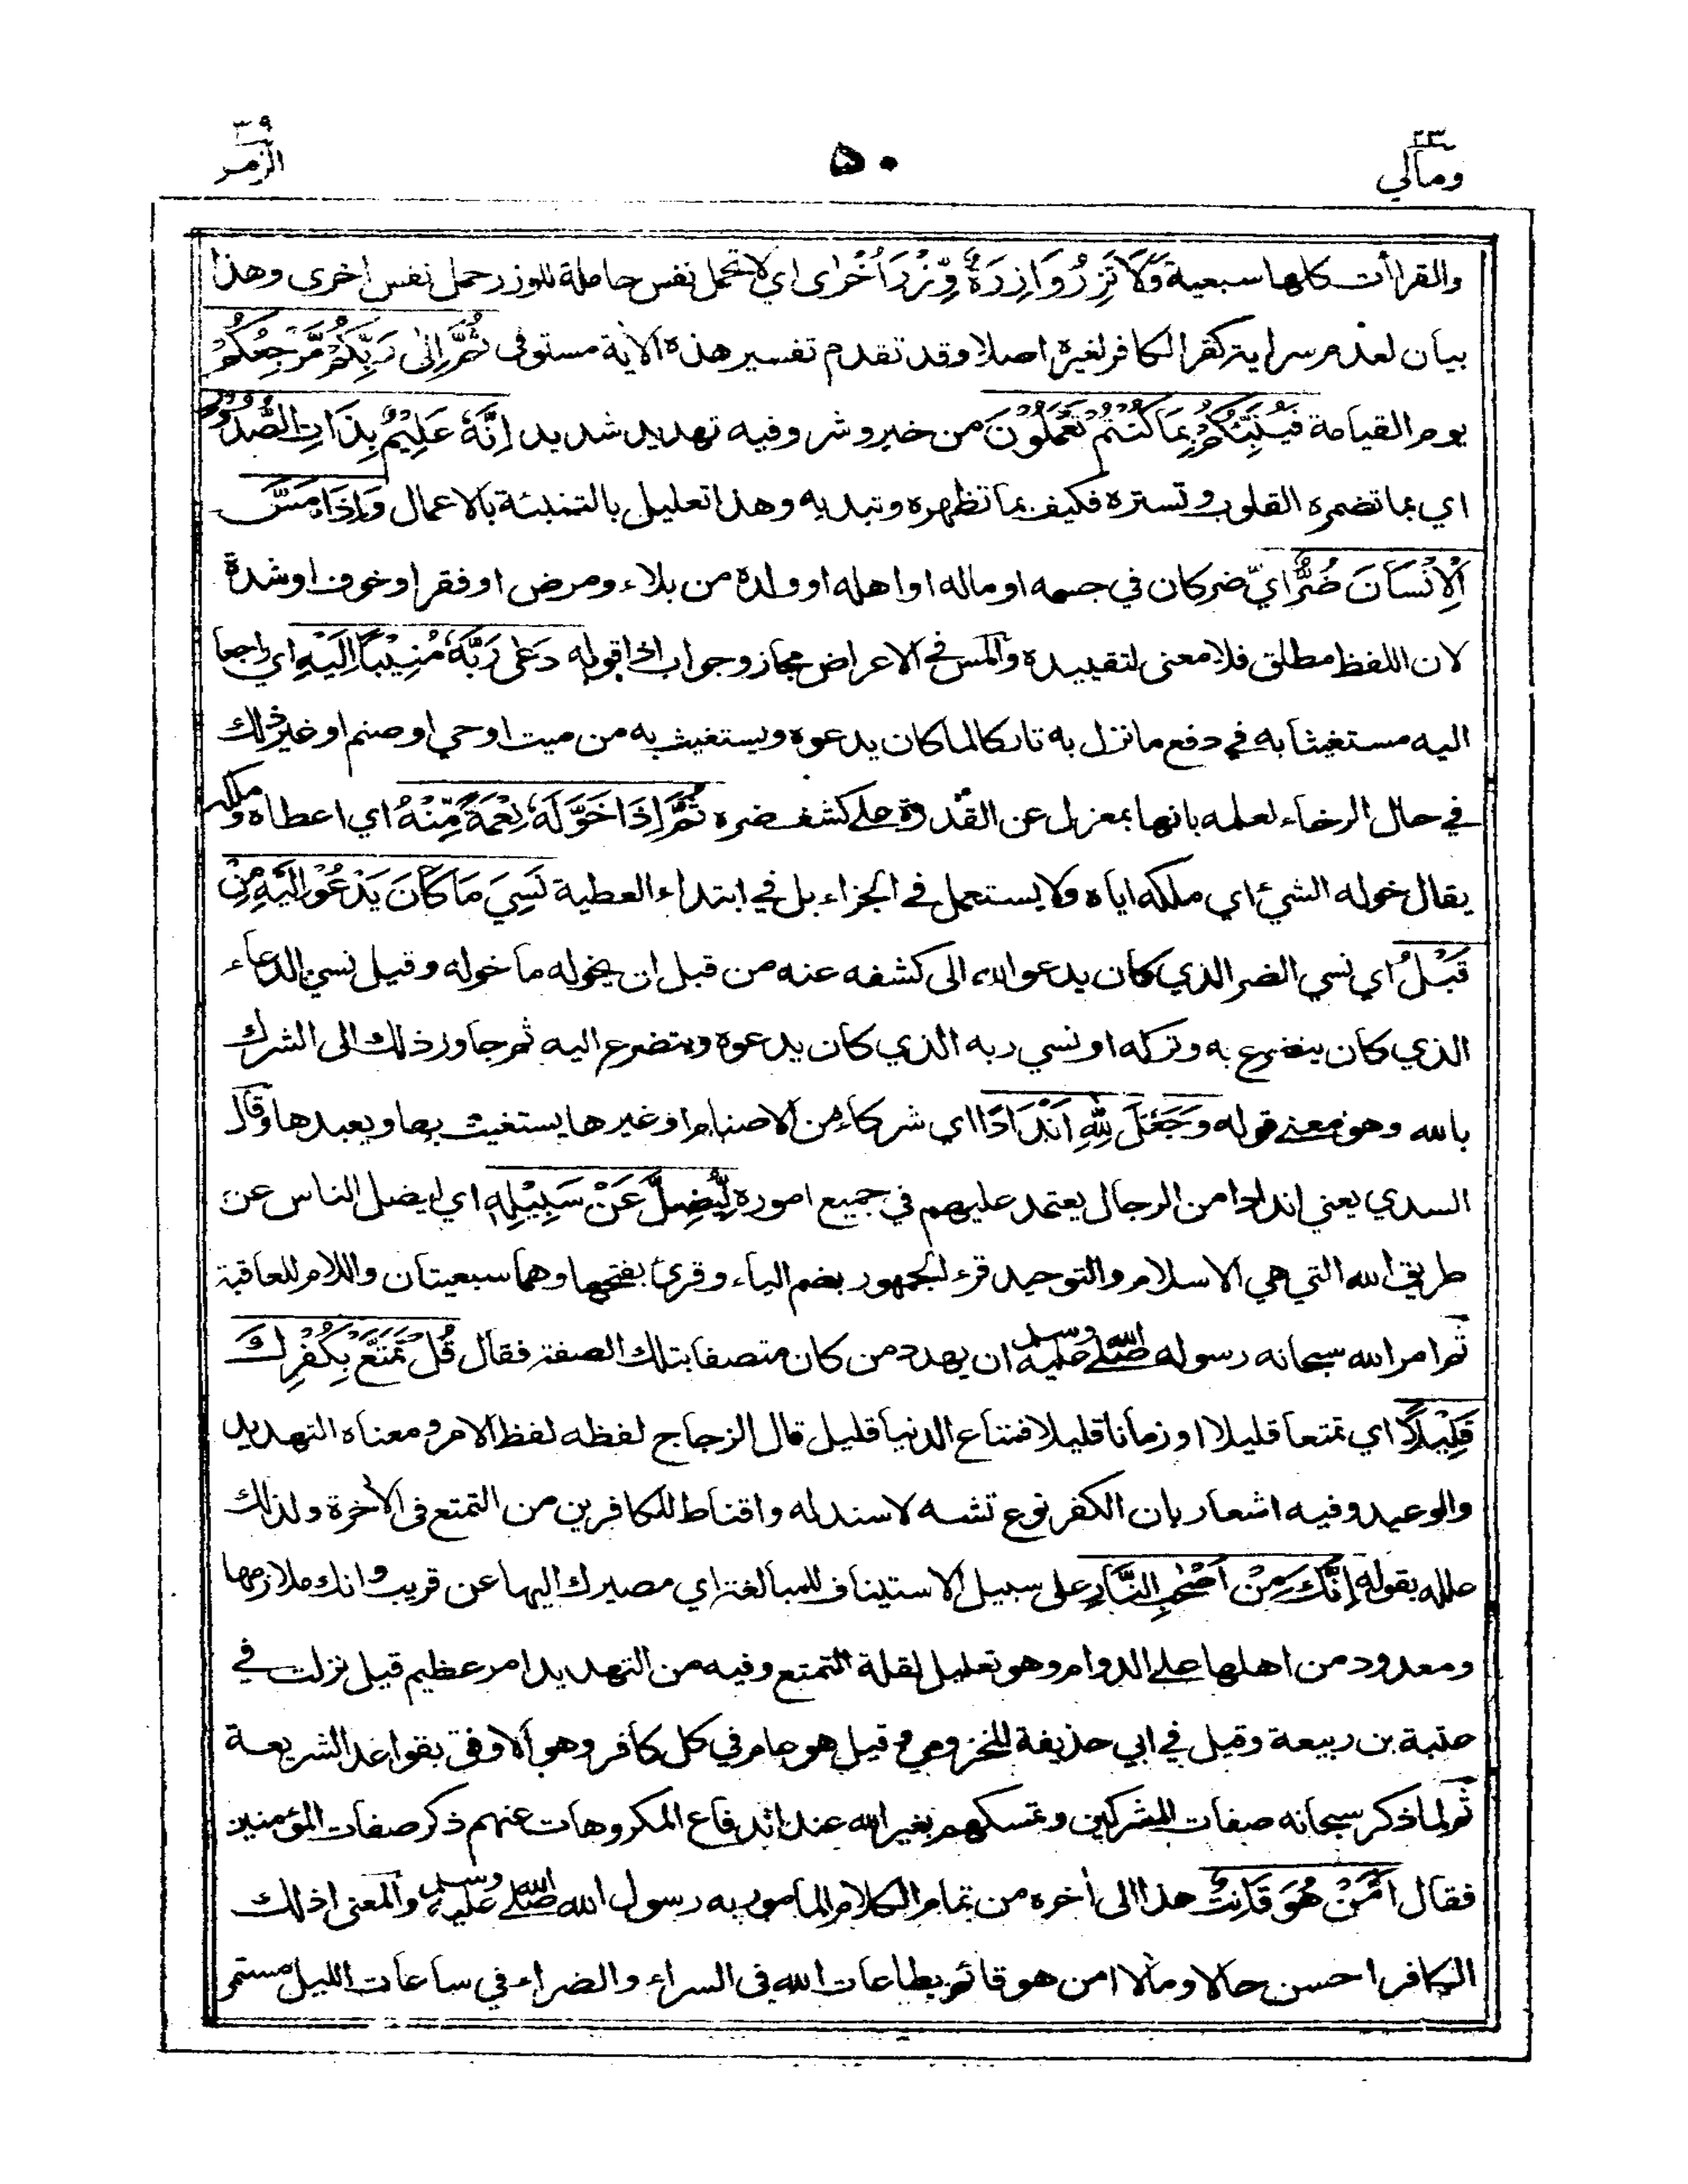 ٢٣
ومالي
٥٠
٣٩
الزمر
والقراآت كلها سبعية وَلَا تَزِرُ وَازِرَةٌ وِّزْرَ أُخْرٰى اي لا تحمل نفس حاملة للوزر حمل نفس اخرى وهذا
بيان لعدم سراية كفر الكافر لغيره اصلا وقد تقدم تفسير هذه الآية مستوفى ثُمَّ إِلٰى رَبِّكُمْ مَّرْجِعُكُمْ
يوم القيامة فَيُنَبِّئُكُمْ بِمَا كُنْتُمْ تَعْمَلُوْنَ من خير وشر وفيه تهديد شديد إِنَّهٗ عَلِيْمٌ بِذَاتِ الصُّدُوْرِ
اي بما تضمره القلوب وتستره فكيف بما تظهره وتبديه وهذا تعليل بالتنبئة بالاعمال وَإِذَا مَسَّ
الْإِنْسَانَ ضُرٌّ ايّ ضر كان في جسمه او ماله او اهله او ولده من بلاء ومرض او فقر او خوف او شدة
لان اللفظ مطلق فلا معنى لتقييده والمس في الاعراض مجاز وجواب اذا قوله دَعٰى رَبَّهٗ مُنِيْبًا إِلَيْهِ اي راجعا
اليه مستغيثا به في دفع ما نزل به تاركا لما كان يدعوه ويستغيث به من ميت او حي او صنم او غير ذلك
في حال الرخاء لعلمه بانها بمعزل عن القدرة على كشف ضره ثُمَّ إِذَا خَوَّلَهٗ نِعْمَةً مِّنْهُ اي اعطاه وملكه
يقال خوله الشيء اي ملكه اياه ولا يستعمل في الجزاء بل في ابتداء العطية نَسِيَ مَا كَانَ يَدْعُوْ إِلَيْهِ مِنْ
قَبْلُ اي نسي الضر الذي كان يدعو الله الى كشفه عنه من قبل ان يخوله ما خوله وقيل نسي الدعاء
الذي كان يتضرع به وتركه او نسي ربه الذي كان يدعوه ويتضرع اليه ثم جاوز ذلك الى الشرك
بالله وهو معنى قوله وَجَعَلَ لِلّٰهِ اَنْدَادًا اي شركاء من الاصنام او غيرها يستغيث بها ويعبدها وقال
السدي يعني اندادا من الرجال يعتمد عليهم في جميع اموره لِّيُضِلَّ عَنْ سَبِيْلِهٖ اي ليضل الناس عن
طريق الله التي هي الاسلام والتوحيد قرء الجمهور بضم الياء وقرئ بفتحها وهما سبعيتان واللام للعاقبة
ثم امر الله سبحانه رسوله صلى الله عليه وسلم ان يهدد من كان متصفا بتلك الصفة فقال قُلْ تَمَتَّعْ بِكُفْرِكَ
قَلِيْلًا اي تمتعا قليلا او زمانا قليلا فمتاع الدنيا قليل قال الزجاج لفظه لفظ الامر ومعناه التهديد
والوعيد وفيه اشعار بان الكفر نوع تشه لا سند له واقناط للكافرين من التمتع فى الآخرة ولذلك
علله بقوله إِنَّكَ مِنْ اَصْحٰبِ النَّارِ على سبيل الاستيناف للمبالغة اي مصيرك اليها عن قريب وانك ملازمها
ومعدود من اهلها على الدوام وهو تعليل لقلة التمتع وفيه من التهديد امر عظيم قيل نزلت في
عتبة بن ربيعة وقيل في ابي حذيفة المخزومي وقيل هو عام في كل كافر وهو الاوفق بقواعد الشريعة
ثم لما ذكر سبحانه صفات المشركين وتمسكهم بغير الله عند اندفاع المكروهات عنهم ذكر صفات المؤمنين
فقال اَمَّنْ هُوَ قَانِتٌ هذا الى آخره من تمام الكلام المأمور به رسول الله صلى الله عليه وسلم والمعنى اذلك
الكافر احسن حالا ومآلا امن هو قائم بطاعات الله فى السراء والضراء في ساعات الليل مستمر